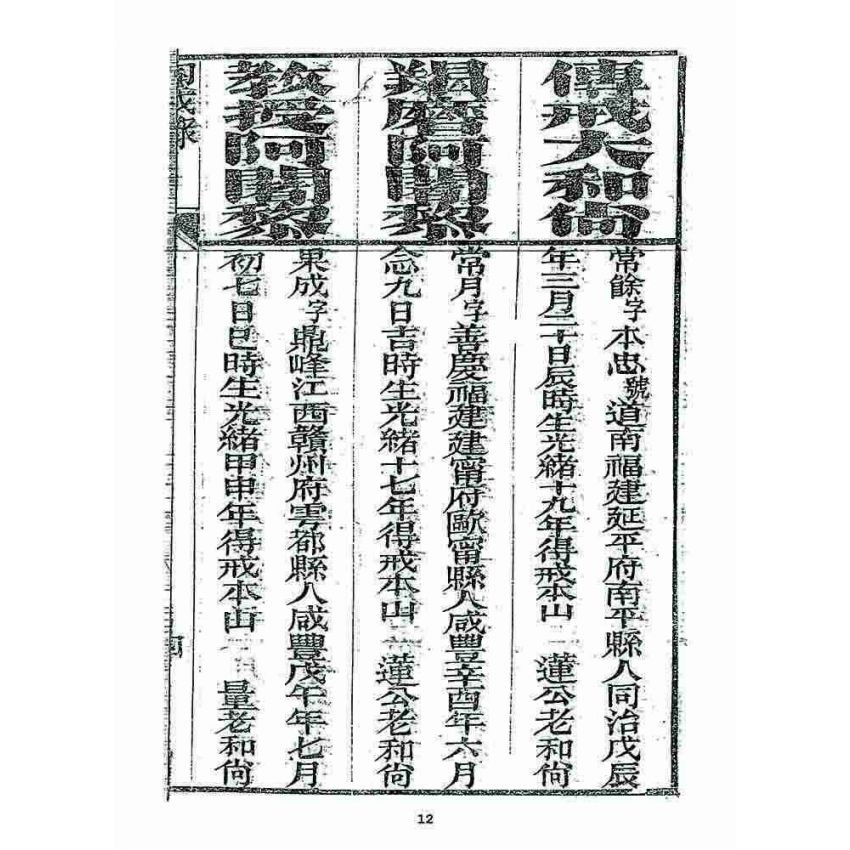 傳戒大和尙
常餘字本忠號道南福建延平府南平縣人同治戊辰
年三月二十日辰時生光緒十九年得戒本山 蓮公老和尙
羯磨阿闍黎
常月字善慶福建建甯府歐甯縣人咸豐辛酉年六月
念九日吉時生光緒十七年得戒本山 蓮公老和尙
教授阿闍黎
果成字鼎峰江西贛州府雩都縣人咸豐戊午年七月
初七日巳時生光緒甲申年得戒本山 量老和尙
同戒錄
12